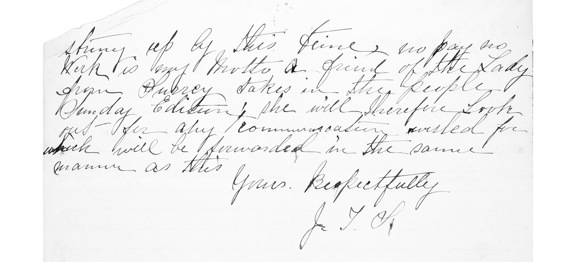 strung up by this time, no pay no
Kirk is my Motto a friend of the Lady
from Quincy takes in the people
Sunday Edition, she will therefore Look
out for any communication wished for
which will be forwarded in the same
manner as this
Yours. Respectfully
J. T. S.